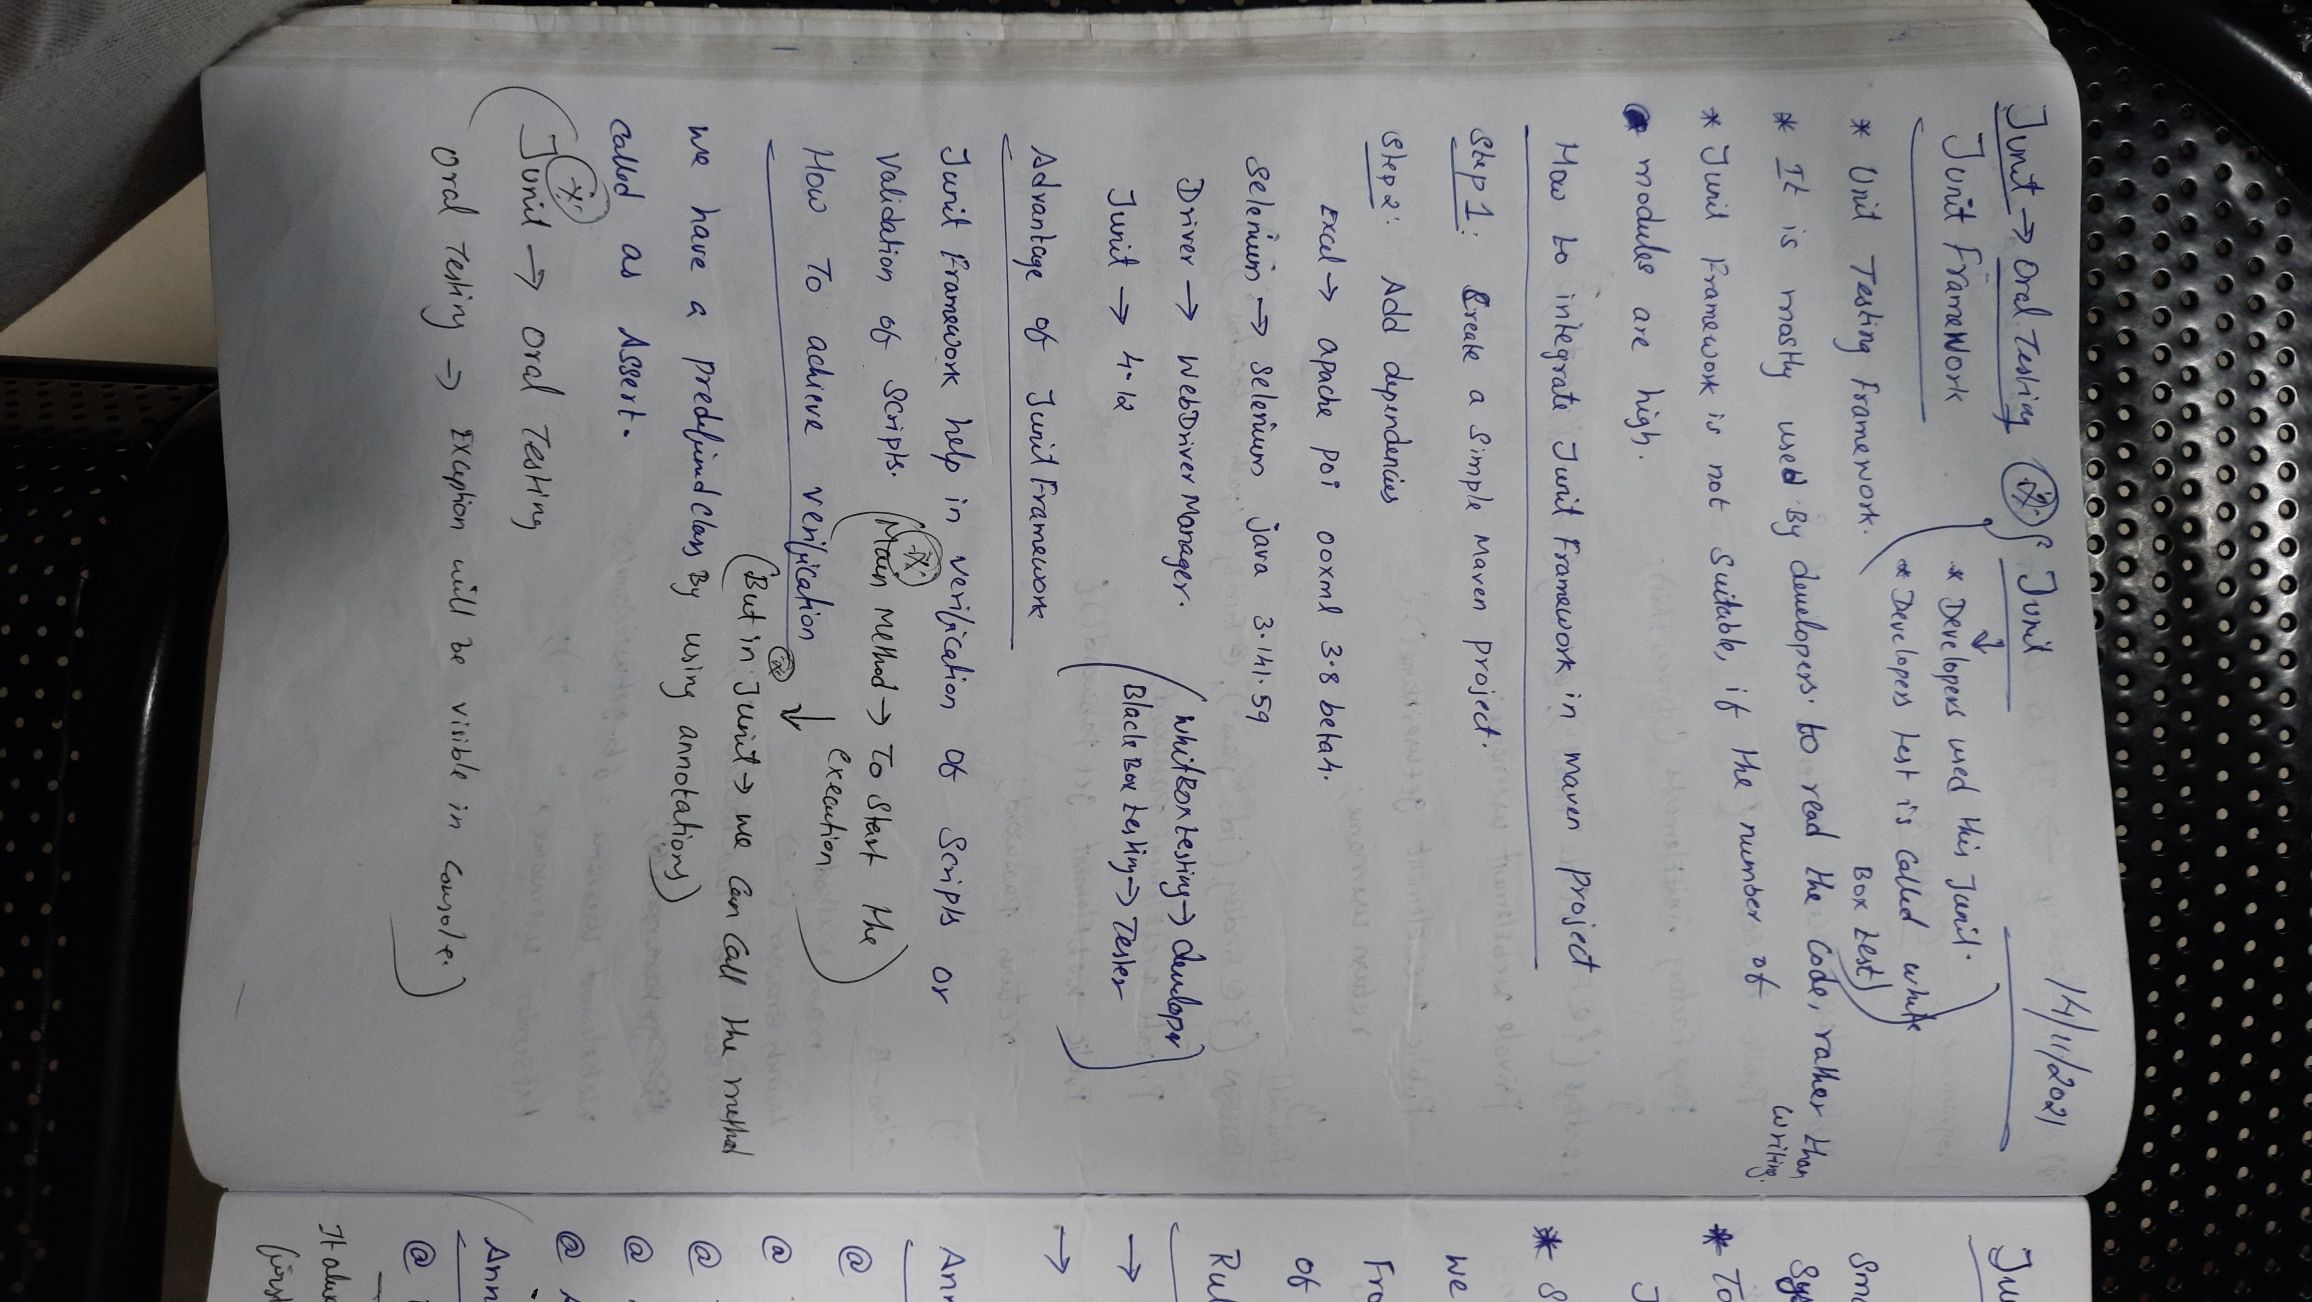 14/11/2021
Junit → Oral Testing
Junit
↓
Junit FrameWork
* Developers used this Junit.
* Developers test is called white
Box test)
* Unit Testing Framework.
* It is mostly used By developers to read the code, rather than
writing.
* Junit Framework is not Suitable, if the number of
* modules are high.
How to integrate Junit Framework in maven project
Step 1: Create a Simple maven project.
Step 2: Add dependencies
Excel → apache poi ooxml 3.8 beta4.
Selenium → Selenium java 3.141.59
Driver → WebDriverManager.
(WhitBox testing → developer
Junit → 4.12
Black Box testing → Tester)
Advantage of Junit Framework
Junit Framework help in verification of Scripts or
Validation of Scripts.
(Main method → To Start the
execution)
How To achieve verification
↓
(But in Junit → we can call the method
By using annotation)
we have a predefined class
called as Assert.
(Junit → Oral Testing
Oral Testing → Exception will be visible in console.)
Ju
Sm
* To
* S
we
Fra
of
Rul
→
→
Ann
@
@
@
@
@
Ann
@